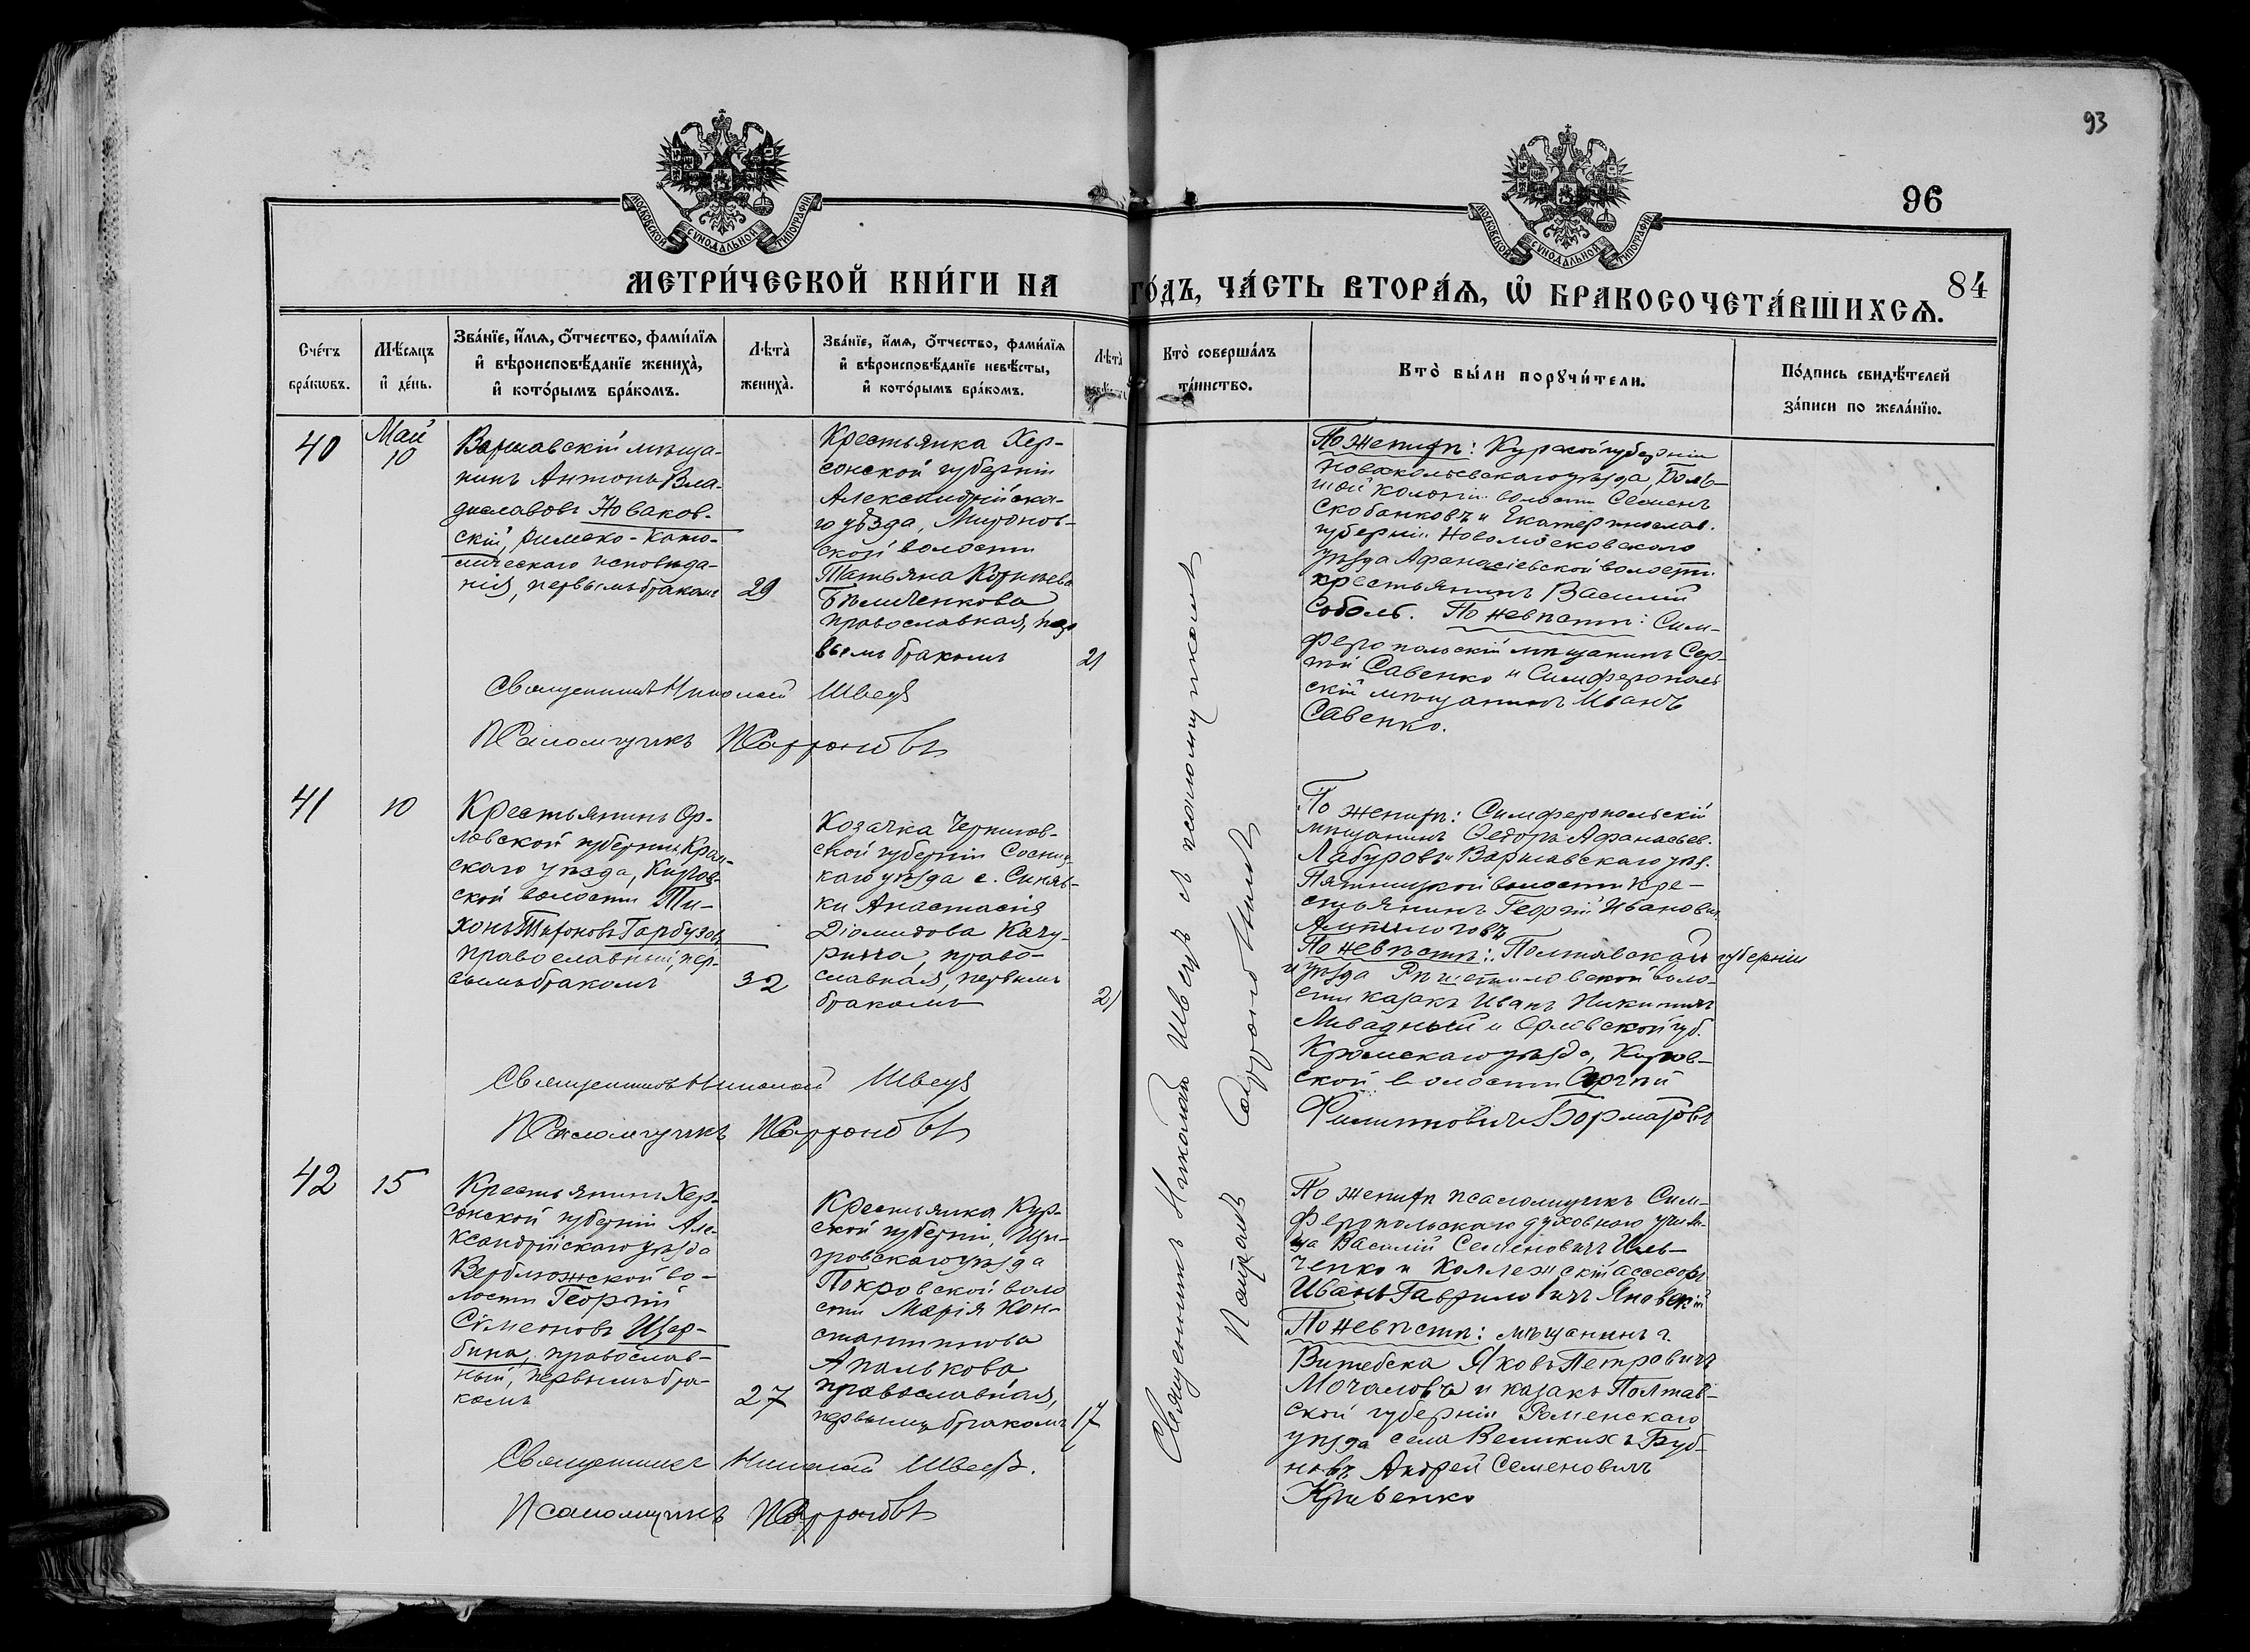 93
96
84
МОСКОВСКОЙ СѴНОДАЛЬНОЙ ТИПОГРАФІИ
МОСКОВСКОЙ СѴНОДАЛЬНОЙ ТИПОГРАФІИ
МЕТРИ́ЧЕСКОЙ КНИ́ГИ НА ГО́ДЪ, ЧА́СТЬ ВТОРА́Ѧ, Ѽ БРАКОСОЧЕТА́ВШИХСѦ.
Сче́тъ
бра́кѡвъ.
Мѣ́сяцъ
и҆ де́нь.
Зва́нїе, и҆́мѧ, ѻ҆́тчество, фами́лїѧ
и҆ вѣроисповѣ́данїе жениха̀,
и҆ кото́рымъ бра́комъ.
Лѣта̀
жениха̀.
Зва́нїе, и҆́мѧ, ѻ҆́тчество, фами́лїѧ
и҆ вѣроисповѣ́данїе невѣ́сты,
и҆ кото́рымъ бра́комъ.
Лѣта̀
Кто̀ соверша́лъ
та́инство.
Кто̀ бы́ли порꙋчи́тели.
По́дпись свидѣ́телей
за́писи по жела́нїю.
40
Май
10
Варшавскій мѣща-
нинъ Антонъ Вла-
диславовъ Новаков-
скій, римско-като-
лическаго исповѣда-
нія, первымъ бракомъ
29
Крестьянка Хер-
сонской губерніи
Александрійска-
го уѣзда, Митронов-
ской волости
Татьяна Корнѣева
Бѣличенкова
православная, пер
вымъ бракомъ
21
Священникъ Николай Швецъ
Псаломщикъ
По женихѣ: Курской губерніи
Новооскольскаго уѣзда, Боль-
шой колоніи волости Семенъ
Скобанковъ и Екатеринослав.
губерніи Новомосковскаго
уѣзда Афанасіевской волости
крестьянинъ Василій
Соболь. По невѣстѣ: Сим-
феропольскій мѣщанинъ Сер-
гѣй Савенко и Симферополь
скій мѣщанинъ Иванъ
Савенко.
41
10
Крестьянинъ Ор-
ловской губерніи Кром-
скаго уѣзда, Киров-
ской волости Ти-
хонъ Тихоновъ Гарбузовъ
православный, пер-
вымъ бракомъ
32
Козачка Чернигов-
ской губерніи Сосниц-
каго уѣзда с. Синяв-
ки Анастасія
Діомидова Качу-
рина, право-
славная, первымъ
бракомъ
21
Священникъ Николай Швецъ
Псаломщикъ
По женихѣ: Симферопольскій
мѣщанинъ Ѳедоръ Афанасьев.
Лабуровъ и Варшавскаго уѣз.
Пятницкой волости кре-
стьянинъ Георгій Ивановъ
По невѣстѣ: Полтавской губерніи
и уѣзда Рѣшетиловской воло-
сти казакъ Иванъ Никитичъ
Ливадный и Орловской губ.
Кромскаго уѣзда, Киров-
ской волости Сергѣй
Филиповичъ Борматовъ
42
15
Крестьянинъ Хер-
сонской губерніи Але-
ксандрійскаго уѣзда
Верблюжской во-
лости Георгій
Симеоновъ Щер-
бина, православ-
ный, первымъ бра-
комъ
27
Крестьянка Кур-
ской губерніи, Щи-
гровскаго уѣзда
Покровской воло
сти Марія Кон-
стантинова
Апалькова
православная,
первымъ бракомъ
17
Священникъ Николай Швецъ.
Псаломщикъ
По женихѣ псаломщикъ Сим-
феропольскаго духовнаго учили-
ща Василій Семеновичъ Иль-
ченко и Коллежскій ассесоръ
Иванъ Гавриловичъ Яновскій
По невѣстѣ: мѣщанинъ г.
Витебска Яковъ Петровичъ
Мочаловъ и казакъ Полтав-
ской губерніи Роменскаго
уѣзда села Великихъ Буб-
новъ Андрей Семеновичъ
Кривенко
Священникъ Николай Швецъ и псаломщикомъ